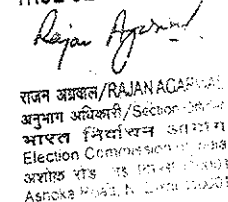 Rajan Agarwal
राजन अग्रवाल/RAJAN AGARWAL
अनुभाग अधिकारी/Section
भारत निर्वाचन आयोग
Election Commission of India
अशोक रोड
Ashoka Road, N